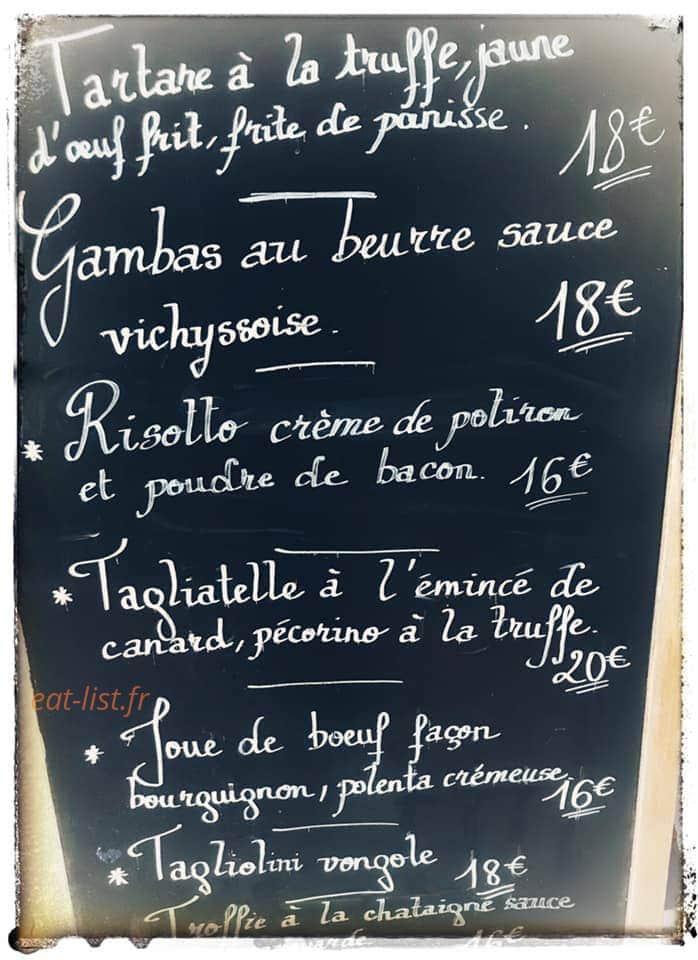 Tartare à la truffe, jaune
d'œuf frit, frite de panisse.
18€
Gambas au beurre sauce
vichyssoise.
18€
* Risotto crème de potiron
et poudre de bacon. 16€
* Tagliatelle à l'émincé de
canard, pécorino à la truffe.
20€
eat-list.fr
* Joue de boeuf façon
bourguignon, polenta crémeuse.
16€
* Tagliolini vongole 18€
Troffie à la chataigne sauce
16€